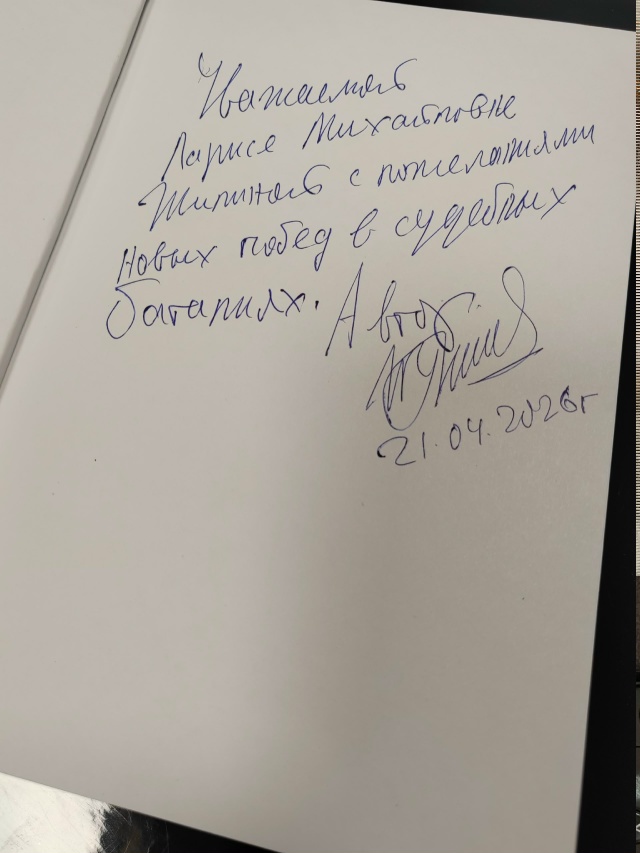 Уважаемой
Ларисе Михайловне
с пожеланиями
новых побед в судебных
баталиях. Автор
21.04.2026г